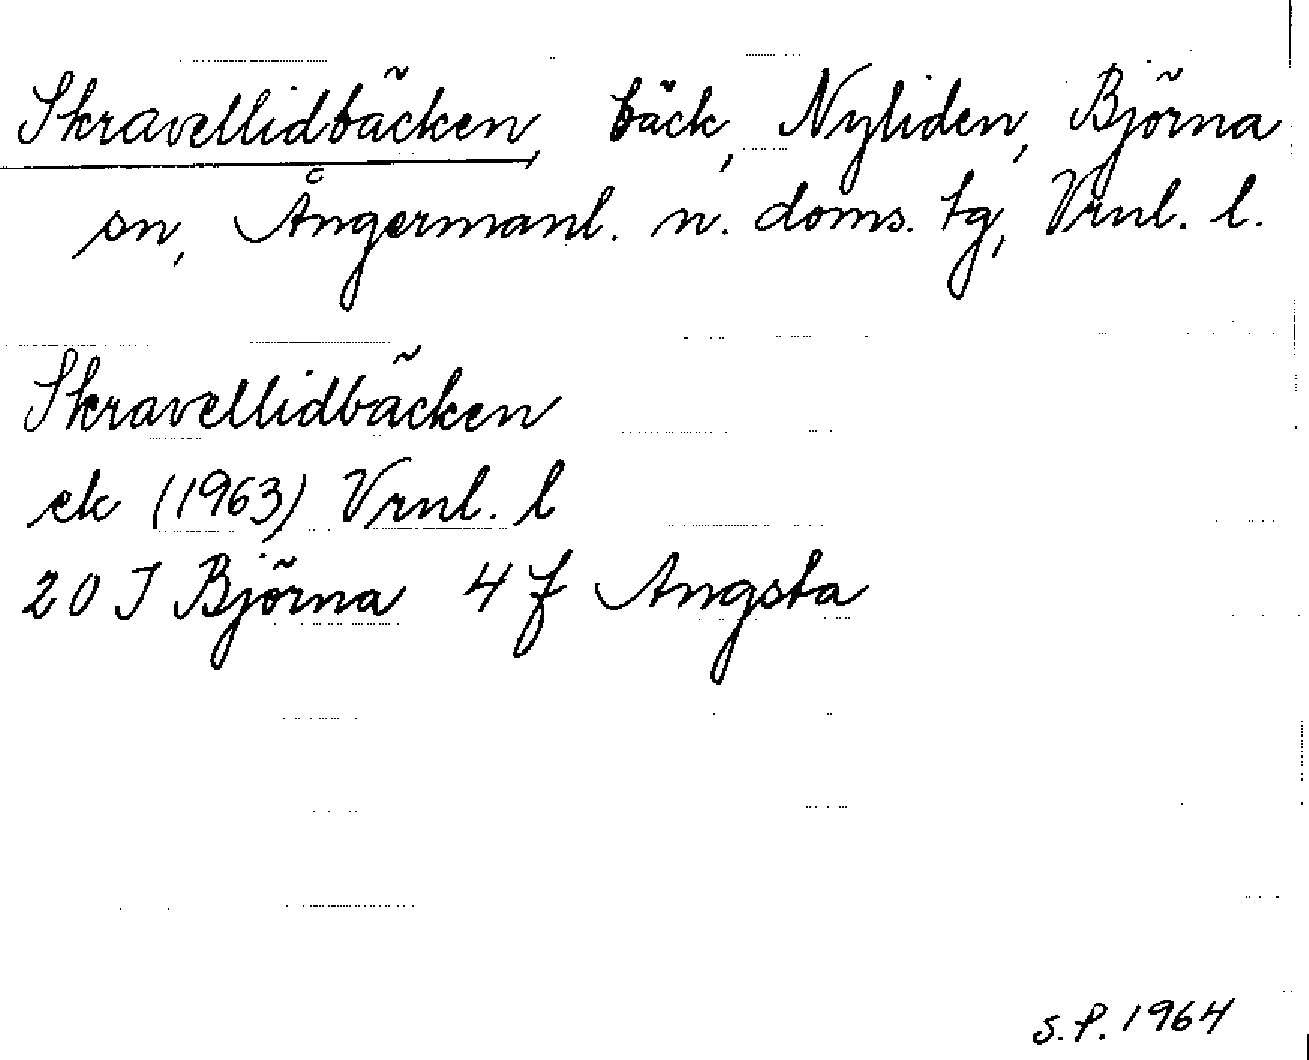 Skravellidbäcken, bäck, Nyliden, Björna
sn, Ångermanl. n. doms. tg, Vrnl. l.
Skravellidbäcken
ek (1963) Vrnl. l
20 J Björna 4 f Angsta
S.P. 1964